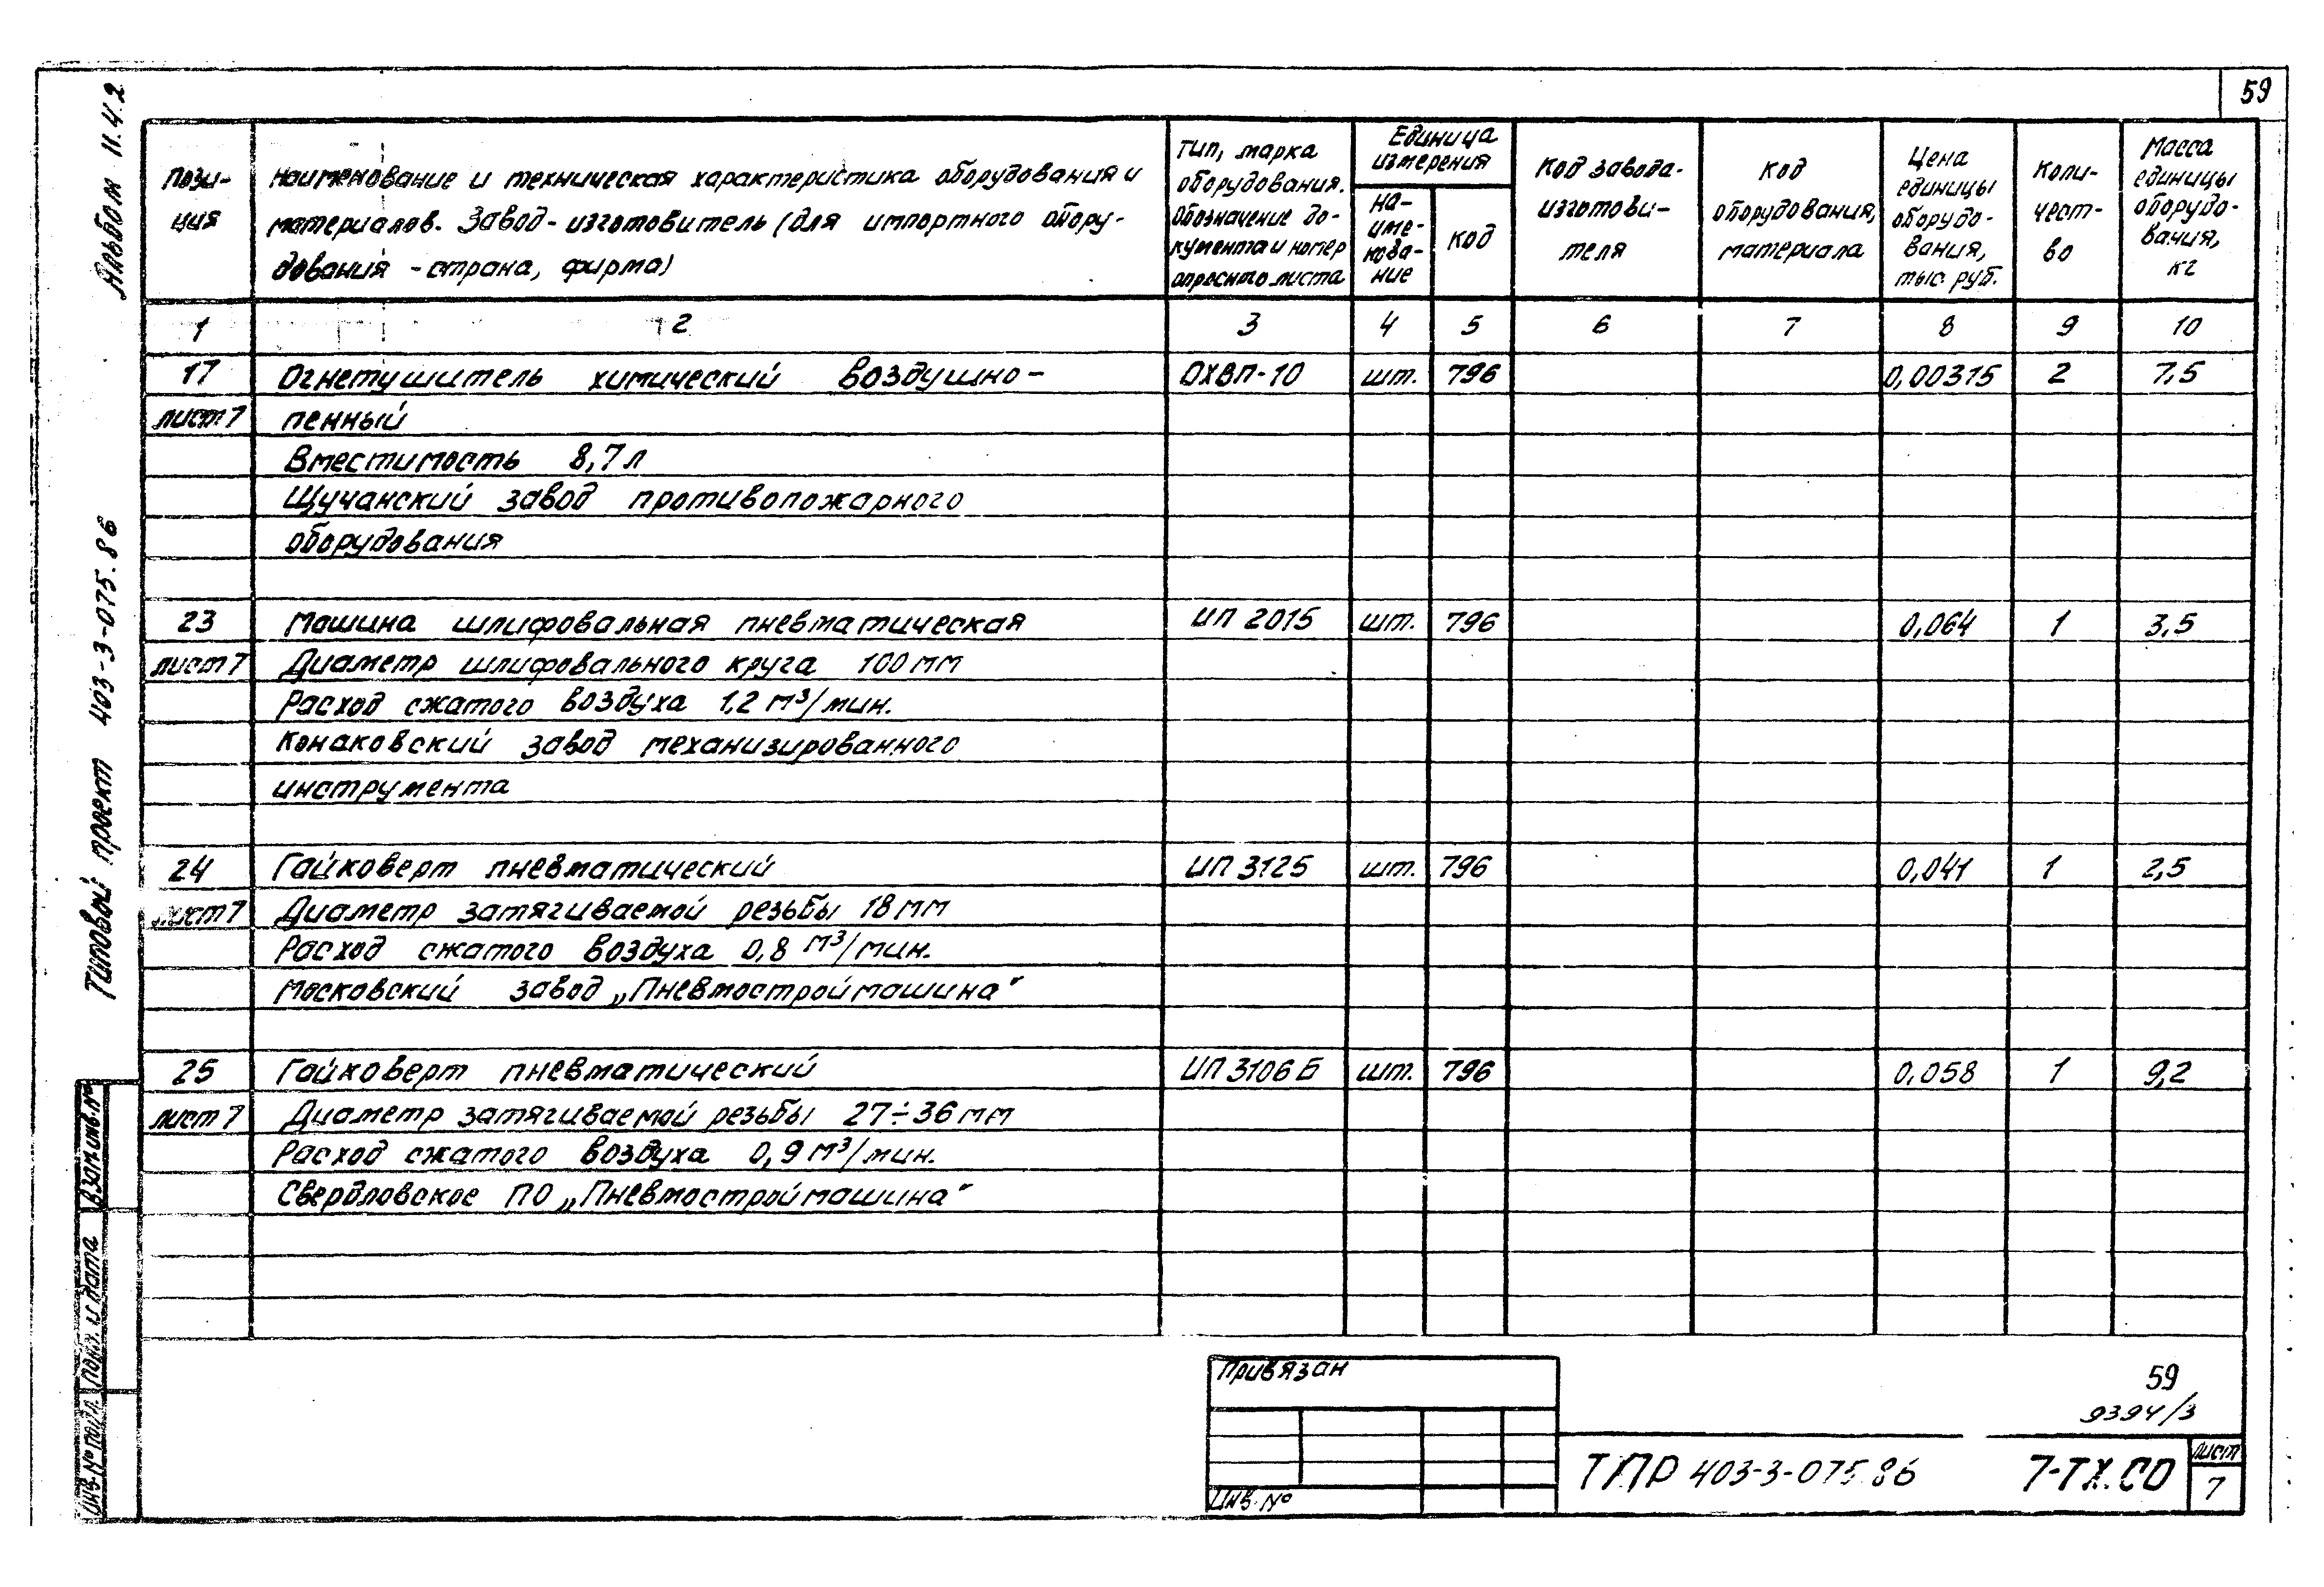 59
Альбом II.4.2
Типовой проект 403-3-075.86
Пози-
ция
Наименование и техническая характеристика оборудования и
материалов. Завод-изготовитель (для импортного обору-
дования - страна, фирма)
Тип, марка
оборудования.
Обозначение до-
кумента и номер
опросного листа
Единица
измерения
На-
име-
нова-
ние
Код
Код завода-
изготови-
теля
Код
оборудования,
материала
Цена
единицы
оборудо-
вания,
тыс. руб.
Коли-
чест-
во
Масса
единицы
оборудо-
вания,
кг
1 2 3 4 5 6 7 8 9 10
17 Огнетушитель химический воздушно- ОХВП-10 шт. 796 0,00315 2 7,5
лист 7 пенный
Вместимость 8,7 л
Щучанский завод противопожарного
оборудования
23 Машина шлифовальная пневматическая ИП 2015 шт. 796 0,064 1 3,5
лист 7 Диаметр шлифовального круга 100 мм
Расход сжатого воздуха 1,2 м³/мин.
Конаковский завод механизированного
инструмента
24 Гайковерт пневматический ИП 3125 шт. 796 0,041 1 2,5
лист 7 Диаметр затягиваемой резьбы 18 мм
Расход сжатого воздуха 0,8 м³/мин.
Московский завод „Пневмостроймашина"
25 Гайковерт пневматический ИП 3106 Б шт. 796 0,058 1 9,2
лист 7 Диаметр затягиваемой резьбы 27÷36 мм
Расход сжатого воздуха 0,9 м³/мин.
Свердловское ПО „Пневмостроймашина"
Взам. инв. №
Подп. и дата
Инв. № подл.
Привязан
Инв. №
59
9394/3
ТПР 403-3-075.86 7-ТХ.СО
Лист
7